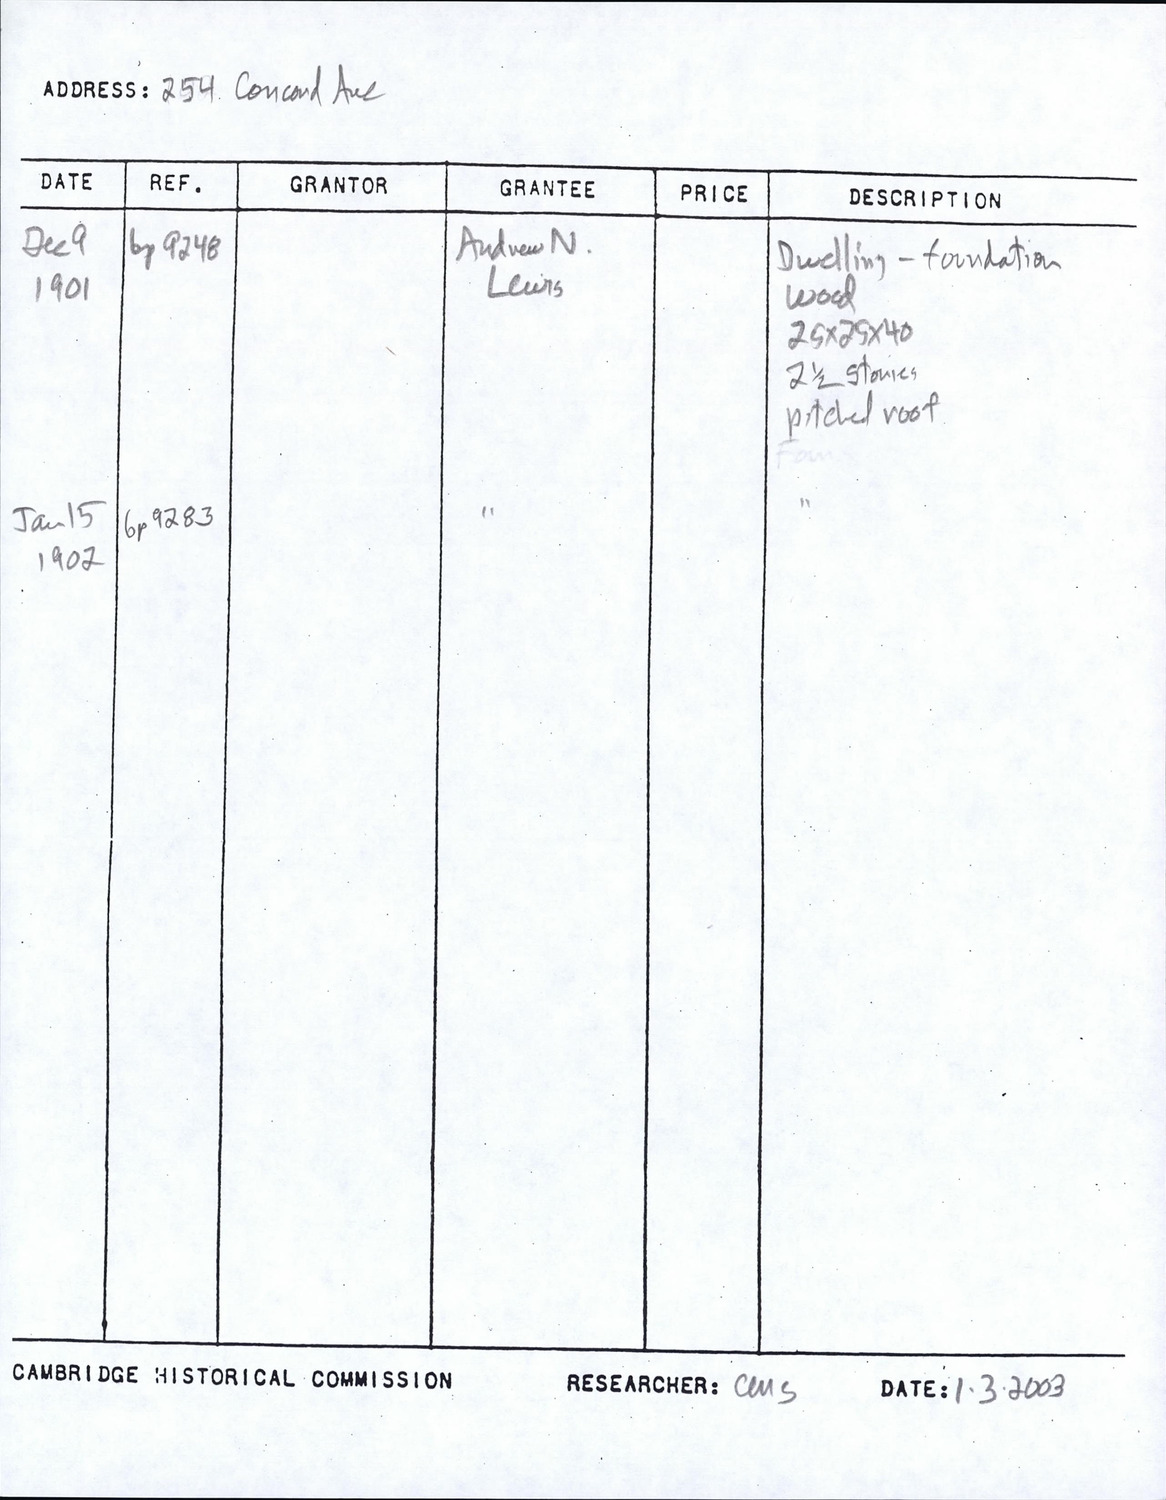 ADDRESS: 254 Concord Ave
DATE REF. GRANTOR GRANTEE PRICE DESCRIPTION
Dec 9 bp 9248 Andrew N. Dwelling - foundation
1901 Lewis wood
25x25x40
2½ stories
pitched roof
Foun
Jan 15 bp 9283 " "
1902
CAMBRIDGE HISTORICAL COMMISSION RESEARCHER: CMS DATE: 1·3·2003